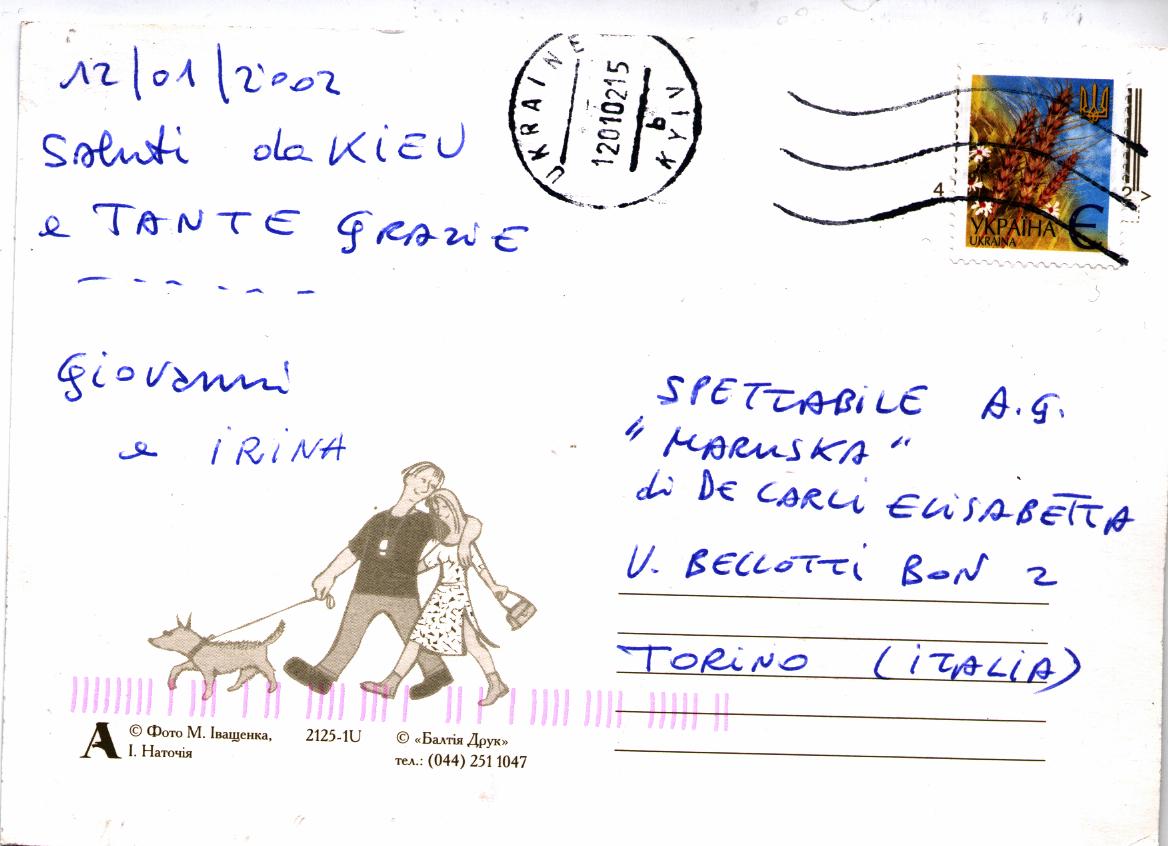 12/01/2002
Saluti da KIEV
e TANTE GRAZIE
Giovanni
e IRINA
UKRAINE
12010215
b
KYIV
4 2 >
УКРАЇНА
UKRAINA
Є
SPETTABILE A.G.
"MARUSKA"
di DE CARLI ELISABETTA
V. BELLOTTI BON 2
TORINO (ITALIA)
А
© Фото М. Іващенка,
І. Наточія
2125-1U
© «Балтія Друк»
тел.: (044) 251 1047